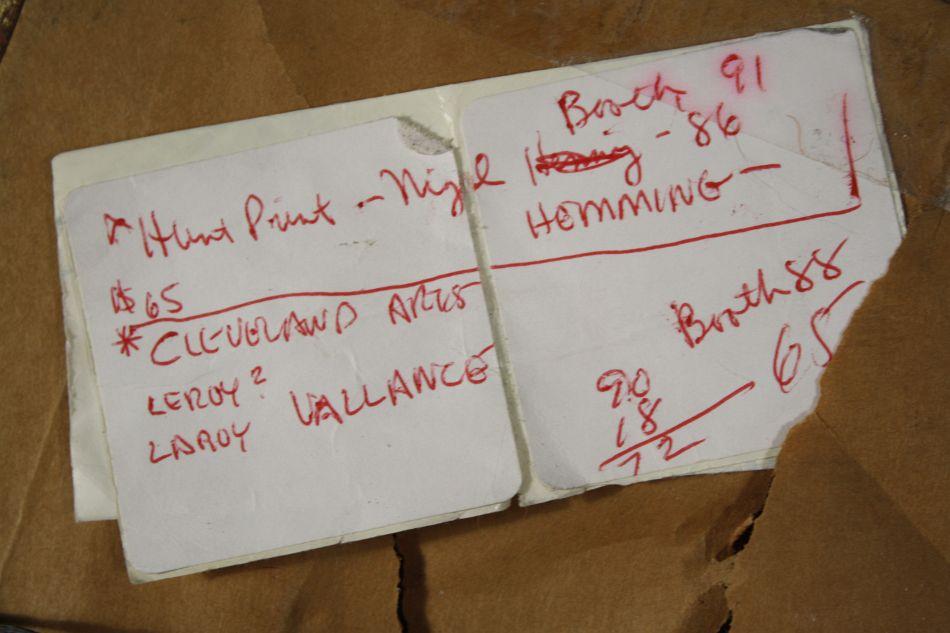 Booth 91
* Hunt Print - Nigel - 86
HEMMING -
$65
* CLEVELAND ARTS
Booth 88
LEROY?
LAROY VALLANCE
65
90
18
72